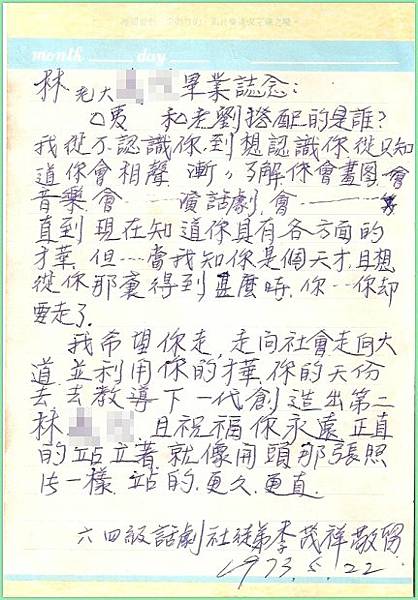 month      day
林老大 畢業誌念：
嘎 和老劉搭配的是誰？
我從不認識你，到想認識你從只知
道你會相聲 漸，了解你會畫图 會
音樂 會……演話劇 會…………
直到現在知道你具有各方面的
才華 但…當我知你是個天才且想
從你那裏得到甚麼時，你…你却
要走了。
我希望你走，走向社會走向大
道 並利用你的才華 你的天份
去去教導下一代創造出第二
林 且祝福你永遠正直
的站立著 就像開頭那張照
片一樣 站的.更久.更直.
六四級話劇社徒弟李茂祥敬留
1973.5.22